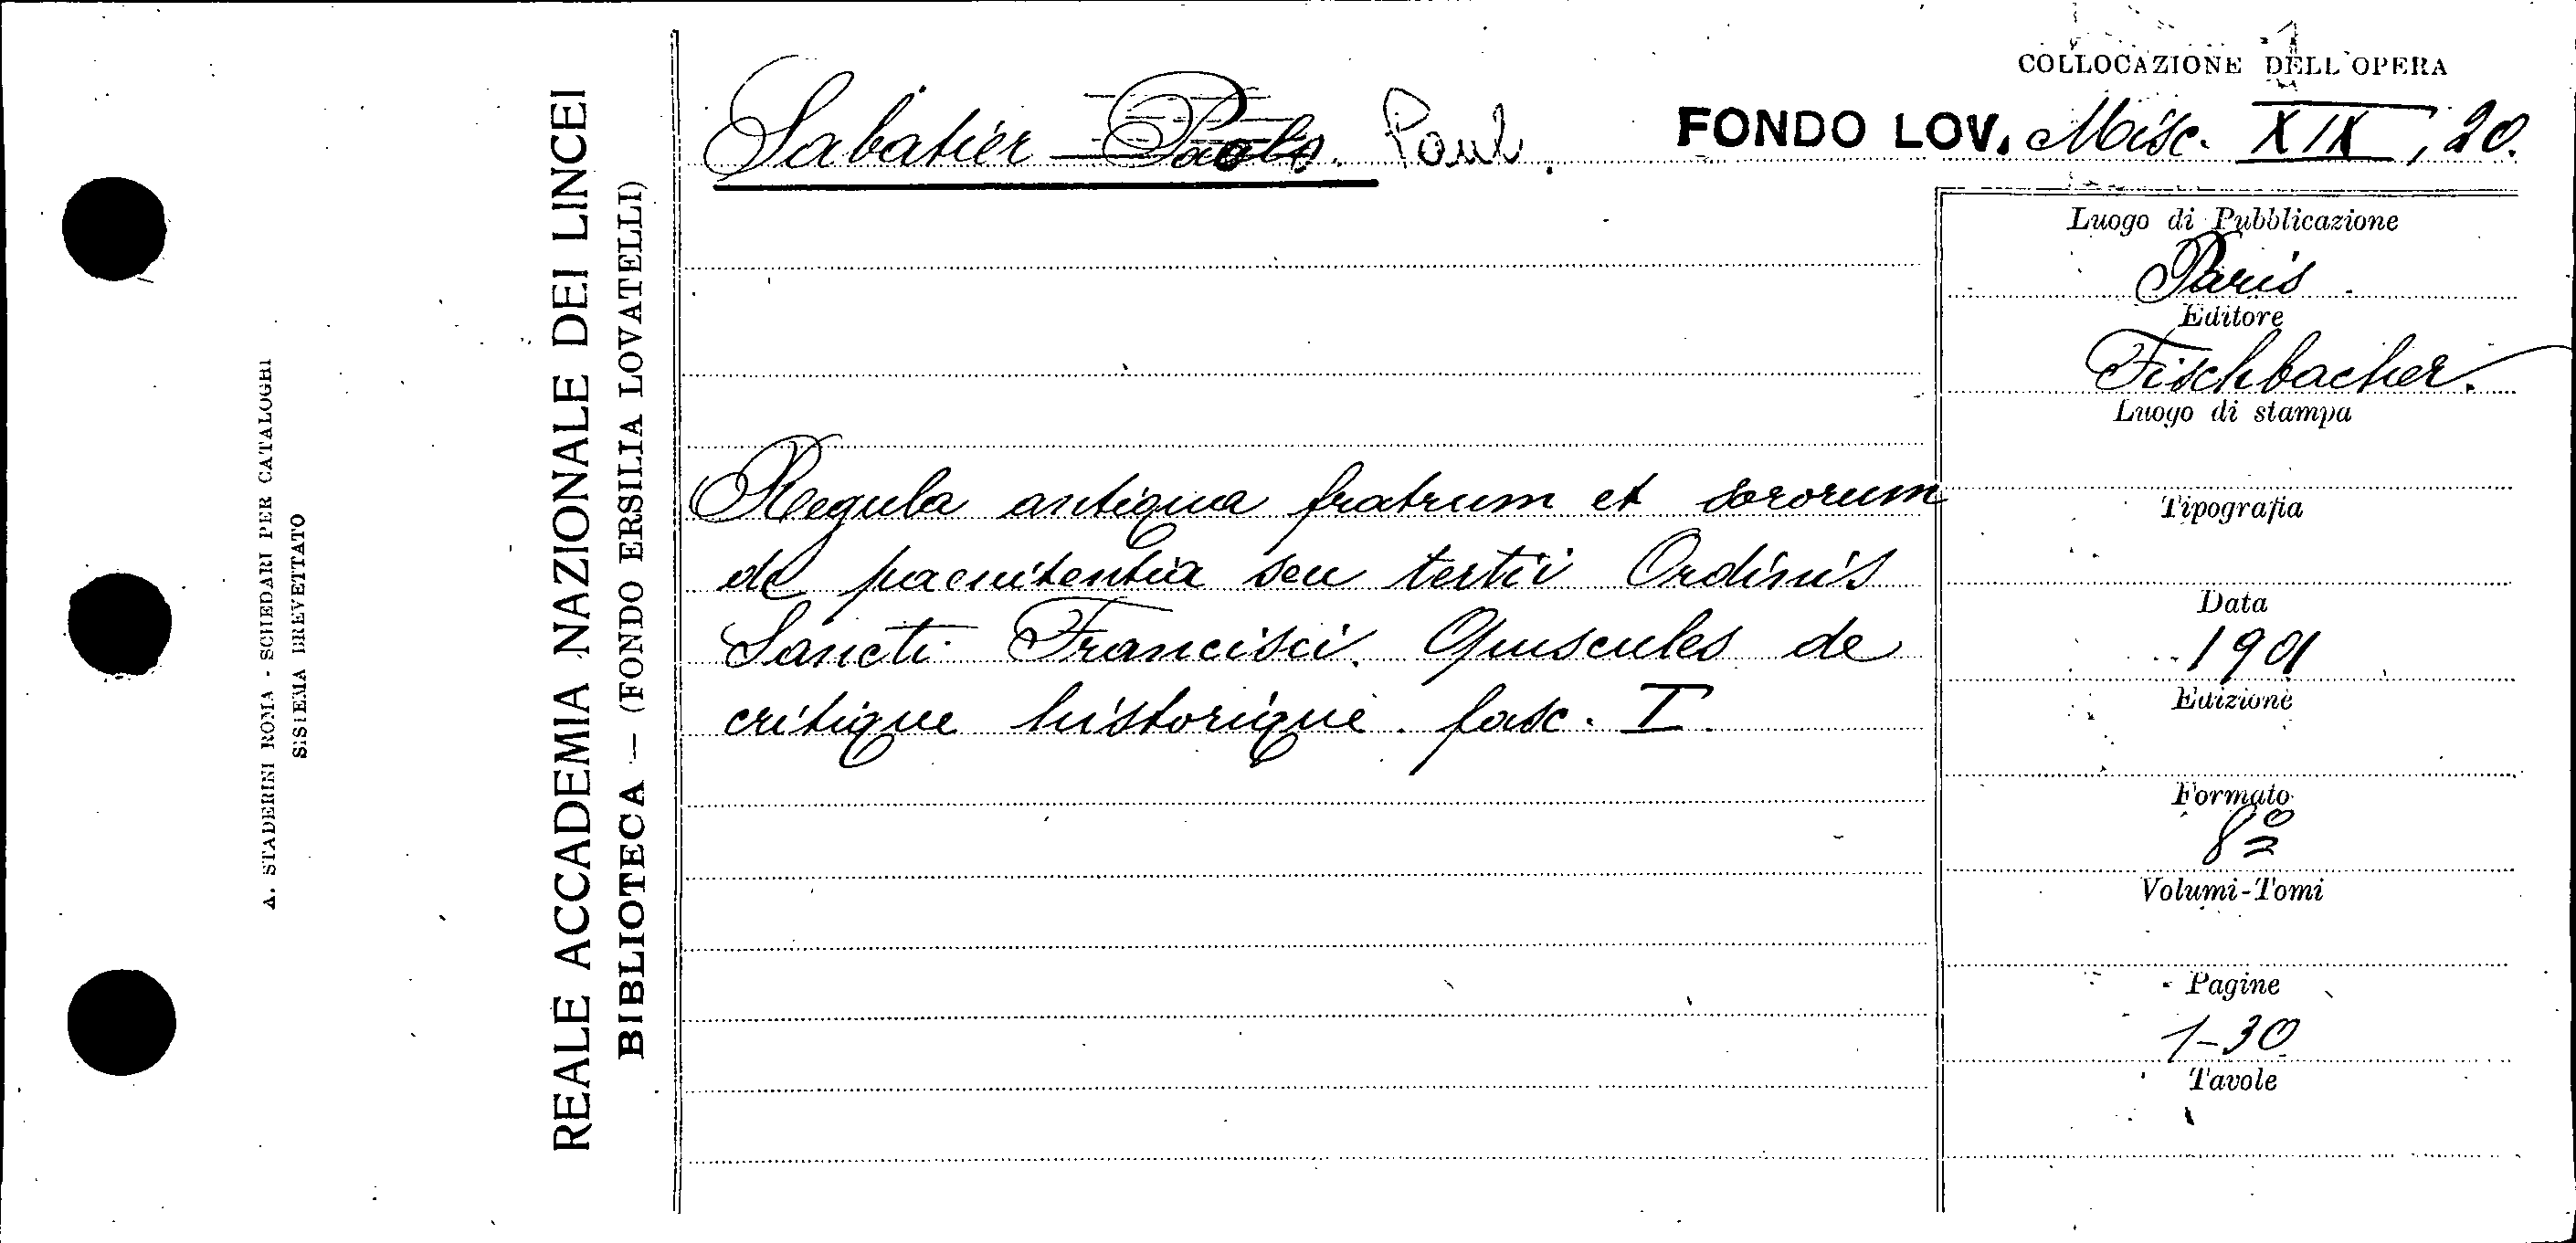 COLLOCAZIONE DELL'OPERA
Sabatier Paolo. Paul.
FONDO LOV. Misc. XIX, 20.
Regula antiqua fratrum et sororum
de paenitentia seu tertii Ordinis
Sancti Francisci. Opuscules de
critique historique. fasc. I.
Luogo di Pubblicazione
Paris
Editore
Fischbacher.
Luogo di stampa
Tipografia
Data
1901
Edizione
Formato
8º
Volumi-Tomi
Pagine
1-30
Tavole
REALE ACCADEMIA NAZIONALE DEI LINCEI
BIBLIOTECA — (FONDO ERSILIA LOVATELLI)
A. STADERINI ROMA - SCHEDARI PER CATALOGHI
SISTEMA BREVETTATO